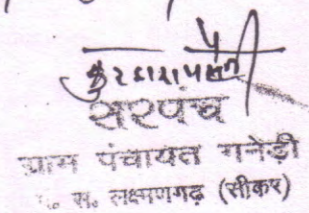 सरपंच
ग्राम पंचायत गनेड़ी
पं. स. लक्ष्मणगढ़ (सीकर)